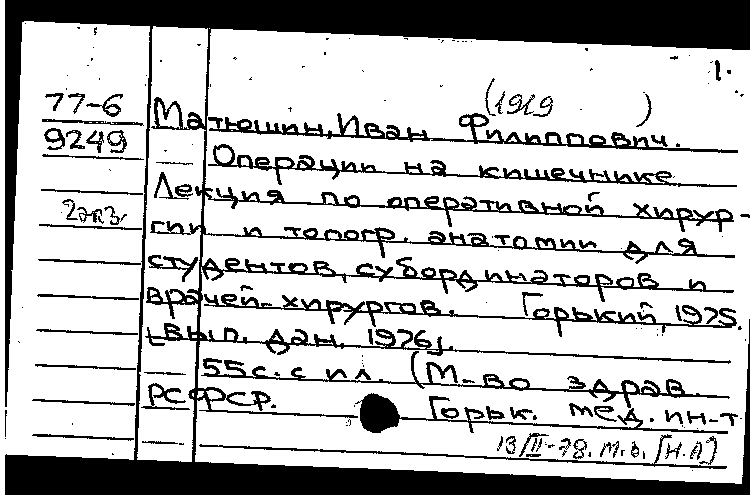 1.
77-6
9249
2 экз.
(1919 )
Матюшин, Иван Филиппович.
— Операции на кишечнике
Лекция по оперативной хирур-
гии и топогр. анатомии для
студентов, субординаторов и
врачей-хирургов. Горький, 1975.
[вып. дан. 1976].
55 с. с ил. (М-во здрав.
РСФСР. Горьк. мед. ин-т
13/II-78. м.в. [Н.А]